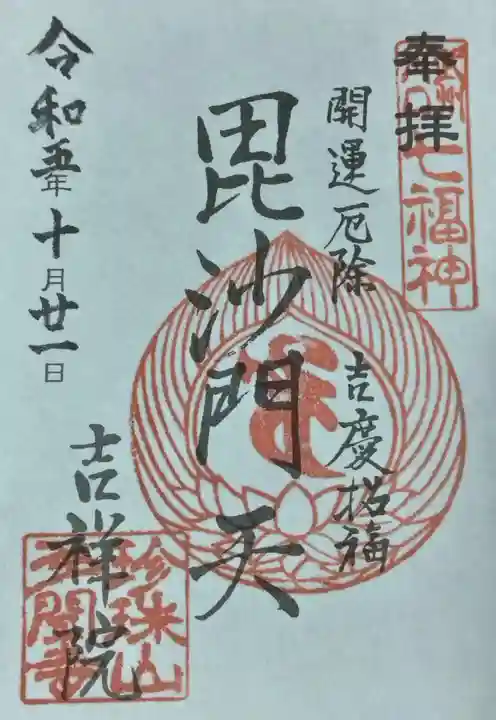 奉拝
七福神
開運厄除 吉慶招福
毘沙門天
令和五年十月廿一日
吉祥院
珍珠山
多聞寺